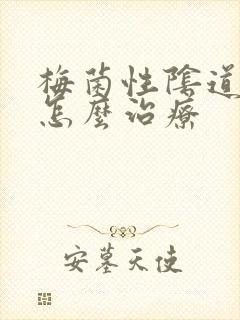 梅菌性陰道
怎麼治療
安墓天使